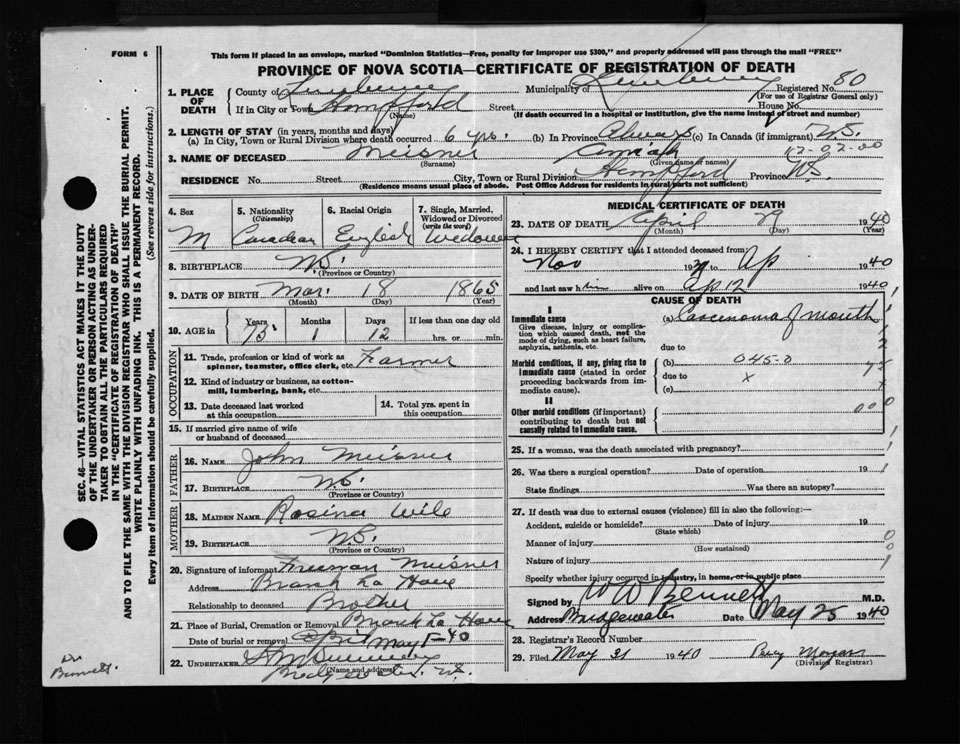 FORM 6
This form if placed in an envelope, marked "Dominion Statistics—Free, penalty for improper use $300," and properly addressed will pass through the mail "FREE"
PROVINCE OF NOVA SCOTIA—CERTIFICATE OF REGISTRATION OF DEATH
SEC. 46—VITAL STATISTICS ACT MAKES IT THE DUTY
OF THE UNDERTAKER OR PERSON ACTING AS UNDER-
TAKER TO OBTAIN ALL THE PARTICULARS REQUIRED
IN THE "CERTIFICATE OF REGISTRATION OF DEATH"
AND TO FILE THE SAME WITH THE DIVISION REGISTRAR WHO SHALL ISSUE THE BURIAL PERMIT.
WRITE PLAINLY WITH UNFADING INK. THIS IS A PERMANENT RECORD.
Every item of information should be carefully supplied. (See reverse side for instructions.)
1. PLACE OF DEATH
County of Lunenburg Municipality of Lunenburg Registered No. 80
(For use of Registrar General only)
If in City or Town Hempford Street House No.
(Name) (If death occurred in a hospital or institution, give name instead of street and number)
2. LENGTH OF STAY (in years, months and days)
(a) In City, Town or Rural Division where death occurred 6 yrs. (b) In Province Always (c) In Canada (if immigrant) N.S.
3. NAME OF DECEASED Meisner
(Surname) (Given name/names)
RESIDENCE No. Street City, Town or Rural Division Hempford Province N.S.
(Residence means usual place of abode. Post Office Address for residents in rural parts not sufficient)
4. Sex M
5. Nationality (Citizenship) Canadian
6. Racial Origin English
7. Single, Married, Widowed or Divorced (write the word) Widower
8. BIRTHPLACE N.S.
(Province or Country)
9. DATE OF BIRTH Mar. 18 1865
(Month) (Day) (Year)
10. AGE in Years 75 Months 1 Days 12 If less than one day old hrs. or min.
OCCUPATION
11. Trade, profession or kind of work as spinner, teamster, office clerk, etc. Farmer
12. Kind of industry or business, as cotton-mill, lumbering, bank, etc.
13. Date deceased last worked at this occupation
14. Total yrs. spent in this occupation
15. If married give name of wife or husband of deceased
FATHER
16. NAME John Meisner
17. BIRTHPLACE N.S.
(Province or Country)
MOTHER
18. MAIDEN NAME Rosina Wile
19. BIRTHPLACE N.S.
(Province or Country)
20. Signature of informant Freeman Meisner
Address Branch La Have
Relationship to deceased Brother
21. Place of Burial, Cremation or Removal Branch La Have
Date of burial or removal April May 1-40
22. UNDERTAKER
(Name and address)
Bridgewater N.S.
MEDICAL CERTIFICATE OF DEATH
23. DATE OF DEATH April 29 1940
(Month) (Day) (Year)
24. I HEREBY CERTIFY that I attended deceased from
Nov 1939 to Ap 1940
and last saw him alive on Ap 12 1940
CAUSE OF DEATH
I
Immediate cause (a) Carcinoma of Mouth
Give disease, injury or complication which caused death, not the mode of dying, such as heart failure, asphyxia, asthenia, etc.
due to
Morbid conditions, if any, giving rise to immediate cause (stated in order proceeding backwards from immediate cause).
(b) 045-0
due to x
(c)
II
Other morbid conditions (if important) contributing to death but not causally related to immediate cause. 000
25. If a woman, was the death associated with pregnancy?
26. Was there a surgical operation? Date of operation 19
State findings Was there an autopsy?
27. If death was due to external causes (violence) fill in also the following:—
Accident, suicide or homicide? Date of injury 19
(State which)
Manner of injury
(How sustained)
Nature of injury
Specify whether injury occurred in industry, in home, or in public place
Signed by W W Bennett M.D.
Address Bridgewater Date May 25 1940
28. Registrar's Record Number
29. Filed May 31 1940
(Division Registrar)
Dr